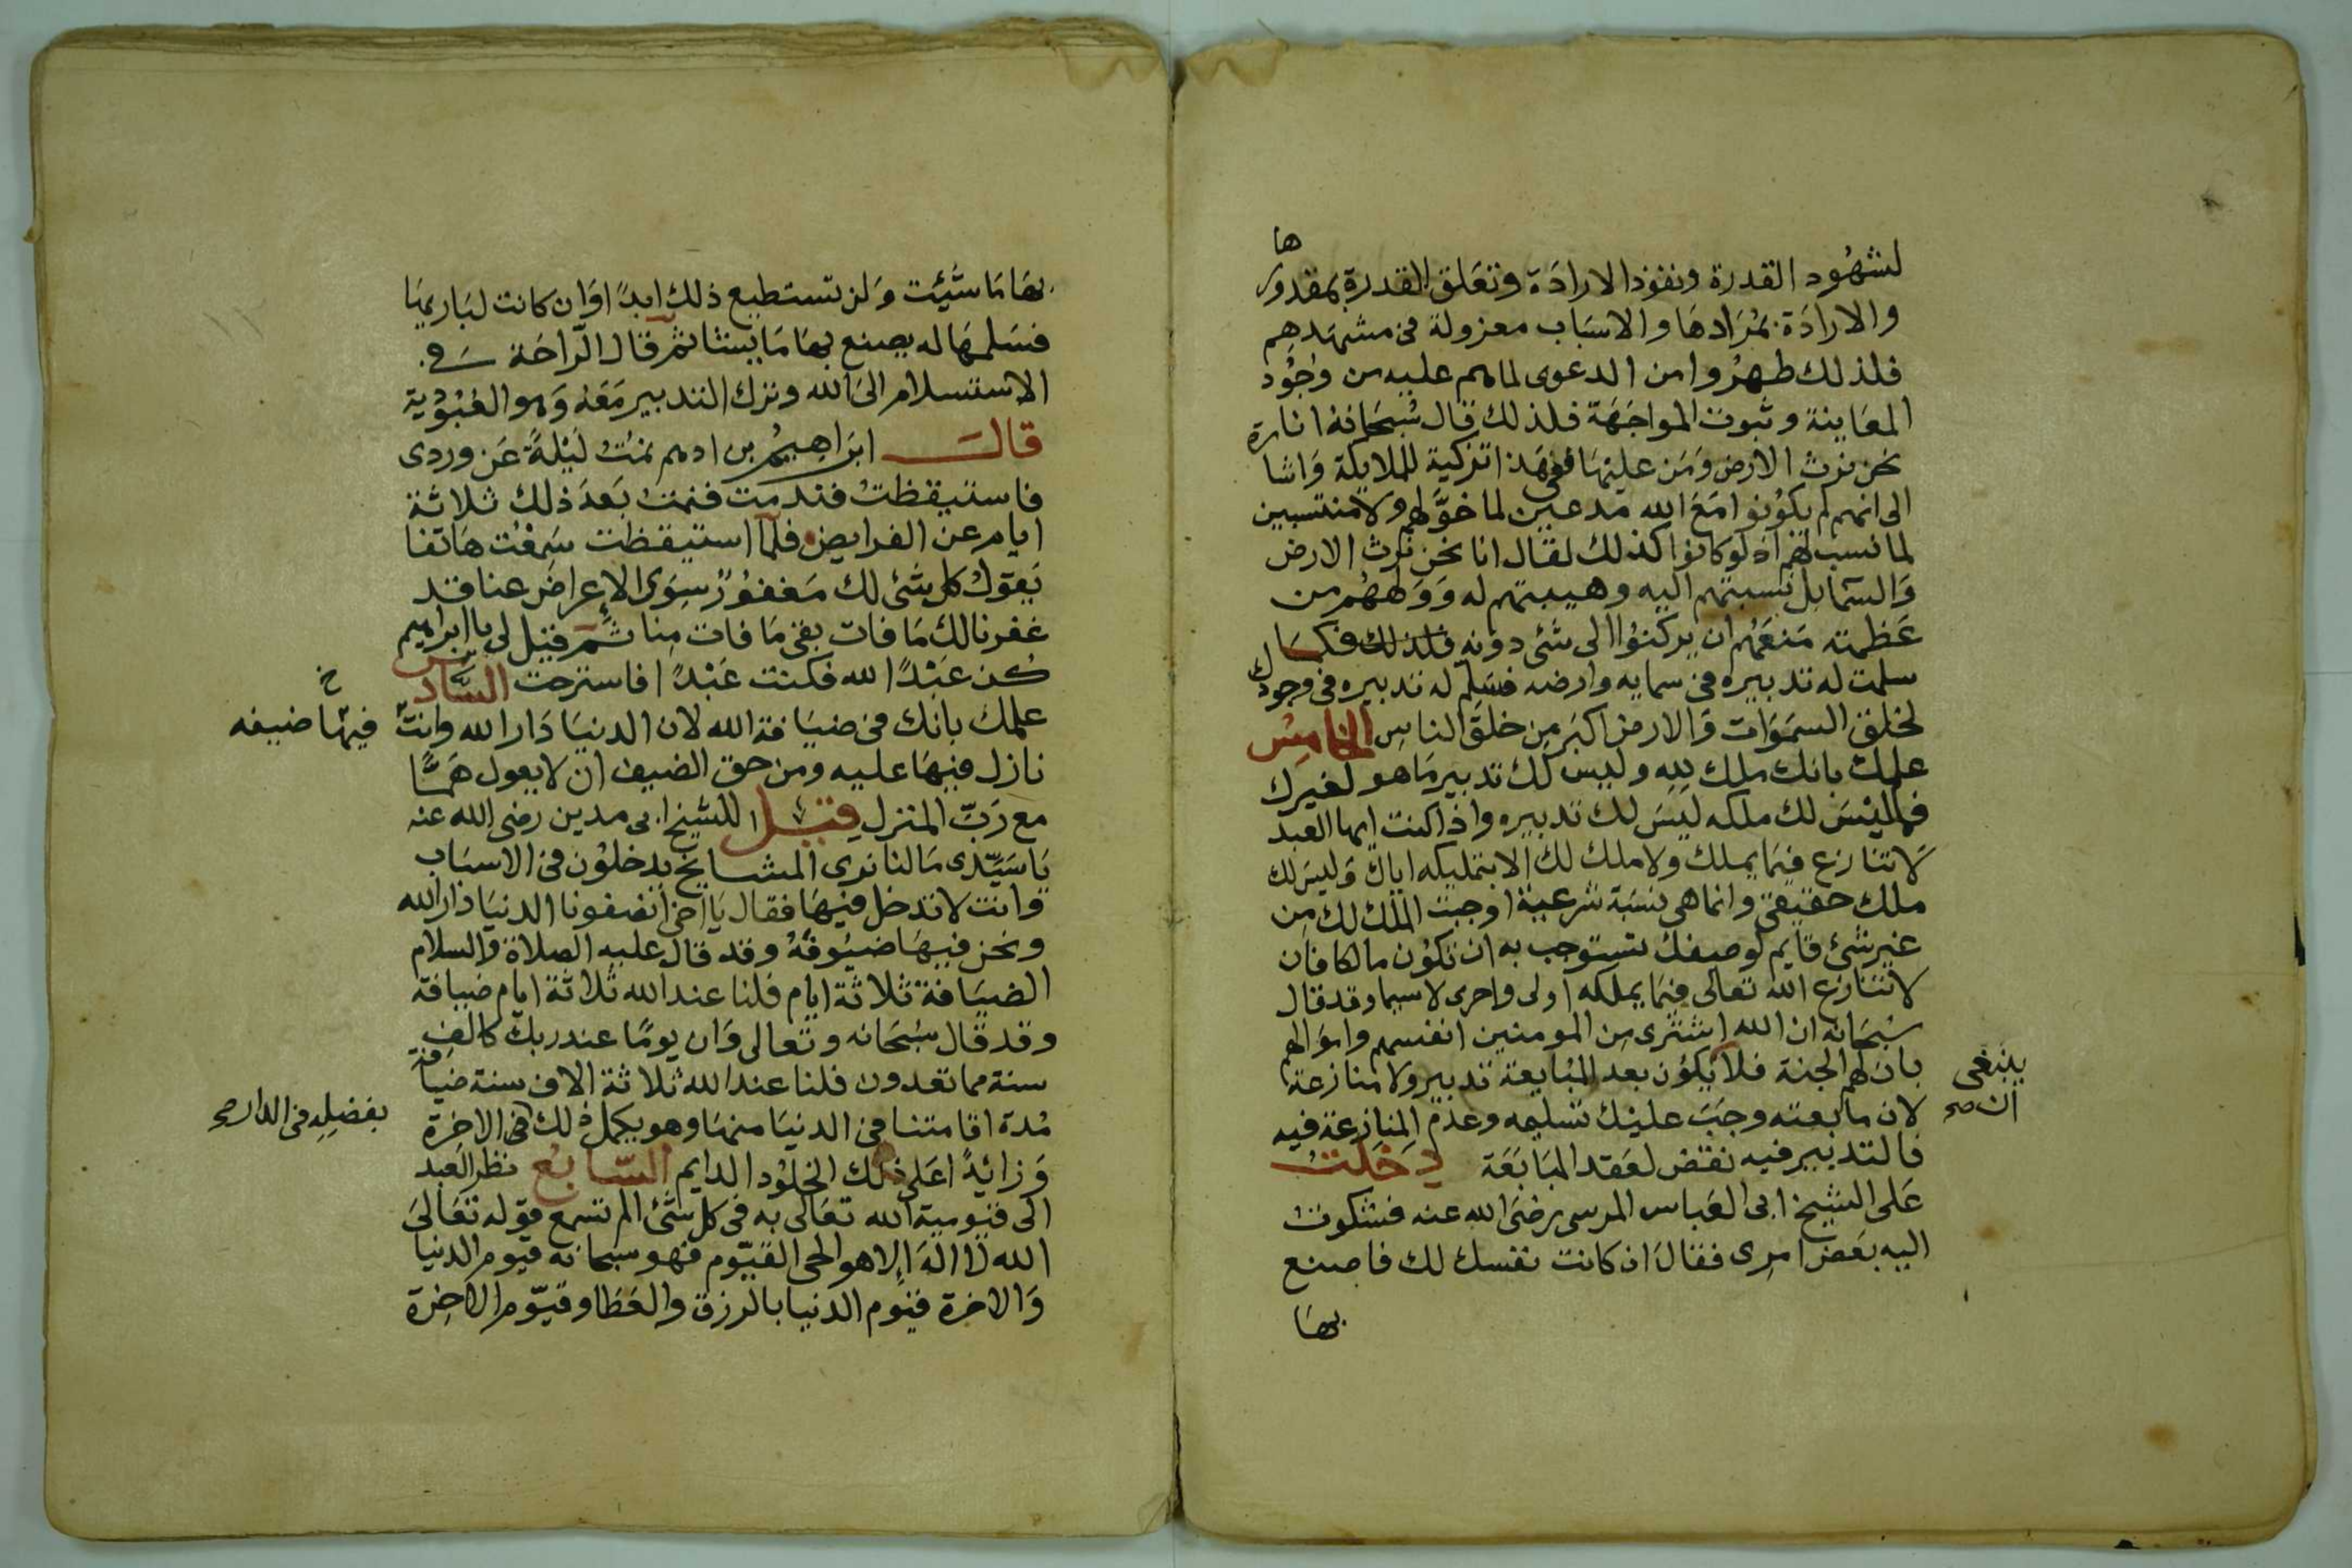 لشهُود القدرة ونفوذ الارادَة وتعَلق القدرة بمقدورها
والارادَة بمُرَادهَا والاسبَاب معزولة فى مشهَدهِم
فلذلك طهرُوا من الدعوى لما هم عليه من وجُود
المعَاينة وثبوت المواجَهَة فلذلك قال سُبحَانه انا
نحن نرث الارض وَمَن عليهَا ففى هَذا تزكية للملايكة وَاشارة
الى انهم لم يكوُنوا مَعَ الله مدعين لما خوَّلهم ولا منتسبين
لما نسب لهم اذ لو كانوا كذلك لقال انا نحن نرث الارض
وَالسمَا بل نسبتهم اليه وهيبتهم له وَوَلههُم من
عَظمته مَنعَهُم ان يركنُوا الى شَئ دونه فلذلك فكمَا
سلمت له تدبيره فى سمايه وارضه فسَلم له تدبيره فى وجودك
لخلق السمَوَات وَالارض اكبَر مِن خلقَ الناسِ الخامِسْ
علمك بانك ملك لِلهِ وليسَ لك تدبير مَا هو لغيرك
فما ليْسَ لك ملكه ليسَ لك تدبيره واذا كنت ايها العبد
لاتنازع فيمَا يملك ولا ملك لك الا بتمليكه اياك وَليسَ لك
ملك حقيقى وانما هى نسَبَة شرعية اوجبَت الملك لك مِن
غير شَئ قايم لوصفك تستوجب به ان تكوُن مالكا فان
لاتنازع الله تعَالى فيمَا يملكه اولى واحرى لا سيما وقد قال
سُبحَانه ان الله اشترى مِن المومنين انفسهم وامَوَالهم
بان لهم الجنة فلا يكوُن بعد المُبايعَة تدبير ولا منازعة
ينبغى
ان صح
لان ما بعته وجَبَ عليْك تسليمه وعدم المنازعة فيه
فالتدبير فيه نقض لعَقد المبَايَعَة دخلتُ
عَلى الشيخ ابى العَباس المرسى رضىَ الله عنه فشكوت
اليه بعَض امرِى فقالَ ان كانت نفسك لك فاصنع
بهَا
بهَا مَا شئِت وَلن تستطيع ذلك ابدًا وَان كانت لبَاريهَا
فسَلمهَا له يصنع بهَا مَا يشا ثم قال الرَاحَة فى
الاستسلام الىَ الله وترك التدبير مَعَهُ وَهو العُبُودية
قالَ ابرَاهيمُ بن ادهم نمتُ لَيْلةً عَن وردى
فاستيقظتُ فندمت فنمت بَعدَ ذلك ثلاثة
ايام عن الفرايض فلمّا استيقظت سَمعْتُ هَاتفا
يَقوُلُ كل شَئ لك مَغفوُرٌ سِوَى الاِعراضَ عنا قد
غفرنا لك مَا فاتَ بقى مَا فات مِنا ثُمَ قيل لى يا ابراهيم
كُن عَبْدًا لله فكنت عَبْدًا فاسترحت السَّادس
علمك بانك فى ضيَافة الله لان الدنيَا دَار الله وانتَ فيهَا ضيفه
خ
نازل فيهَا عليه ومن حق الضيف ان لا يعول هَمًّا
مع رَبّ المنزل قيل للشيخ ابى مدين رضى الله عنه
يَا سَيّدى مَا لنا نرى المشايخ يدخلوُن فى الاسبَاب
وانت لا تدخل فيهَا فقال يَا اخى انصفونا الدنيَا دَار الله
ونحن فيهَا ضيُوفهُ وقد قالَ عليه الصلاة وَالسلام
الضيَافة ثلاثة ايام فلنا عند الله ثلاثة ايام ضيافة
وقد قال سُبحَانه وتعالى وَان يومًا عند ربك كالفِ
سنة مما تعدون فلنا عند الله ثلاثة الاف سنة ضيافة
مُدة اقامتنا فى الدنيَا منهَا وهو يكمل ذلك فى الاخرَة
بفضلِه فى الدار صح
وَزائِدًا عَلى ذلك الخلوُد الدايم السَّابعُ نظر العَبد
الى قيومية الله تعَالى به فى كل شَئ الم تسمع قوله تعَالىَ
الله لا الهَ الا هو الحى القيّوم فهو سبحانه قيوم الدنيا
وَالاخرة قيوم الدنيا بالرزق والعَطا وقيّوم الاخرَة